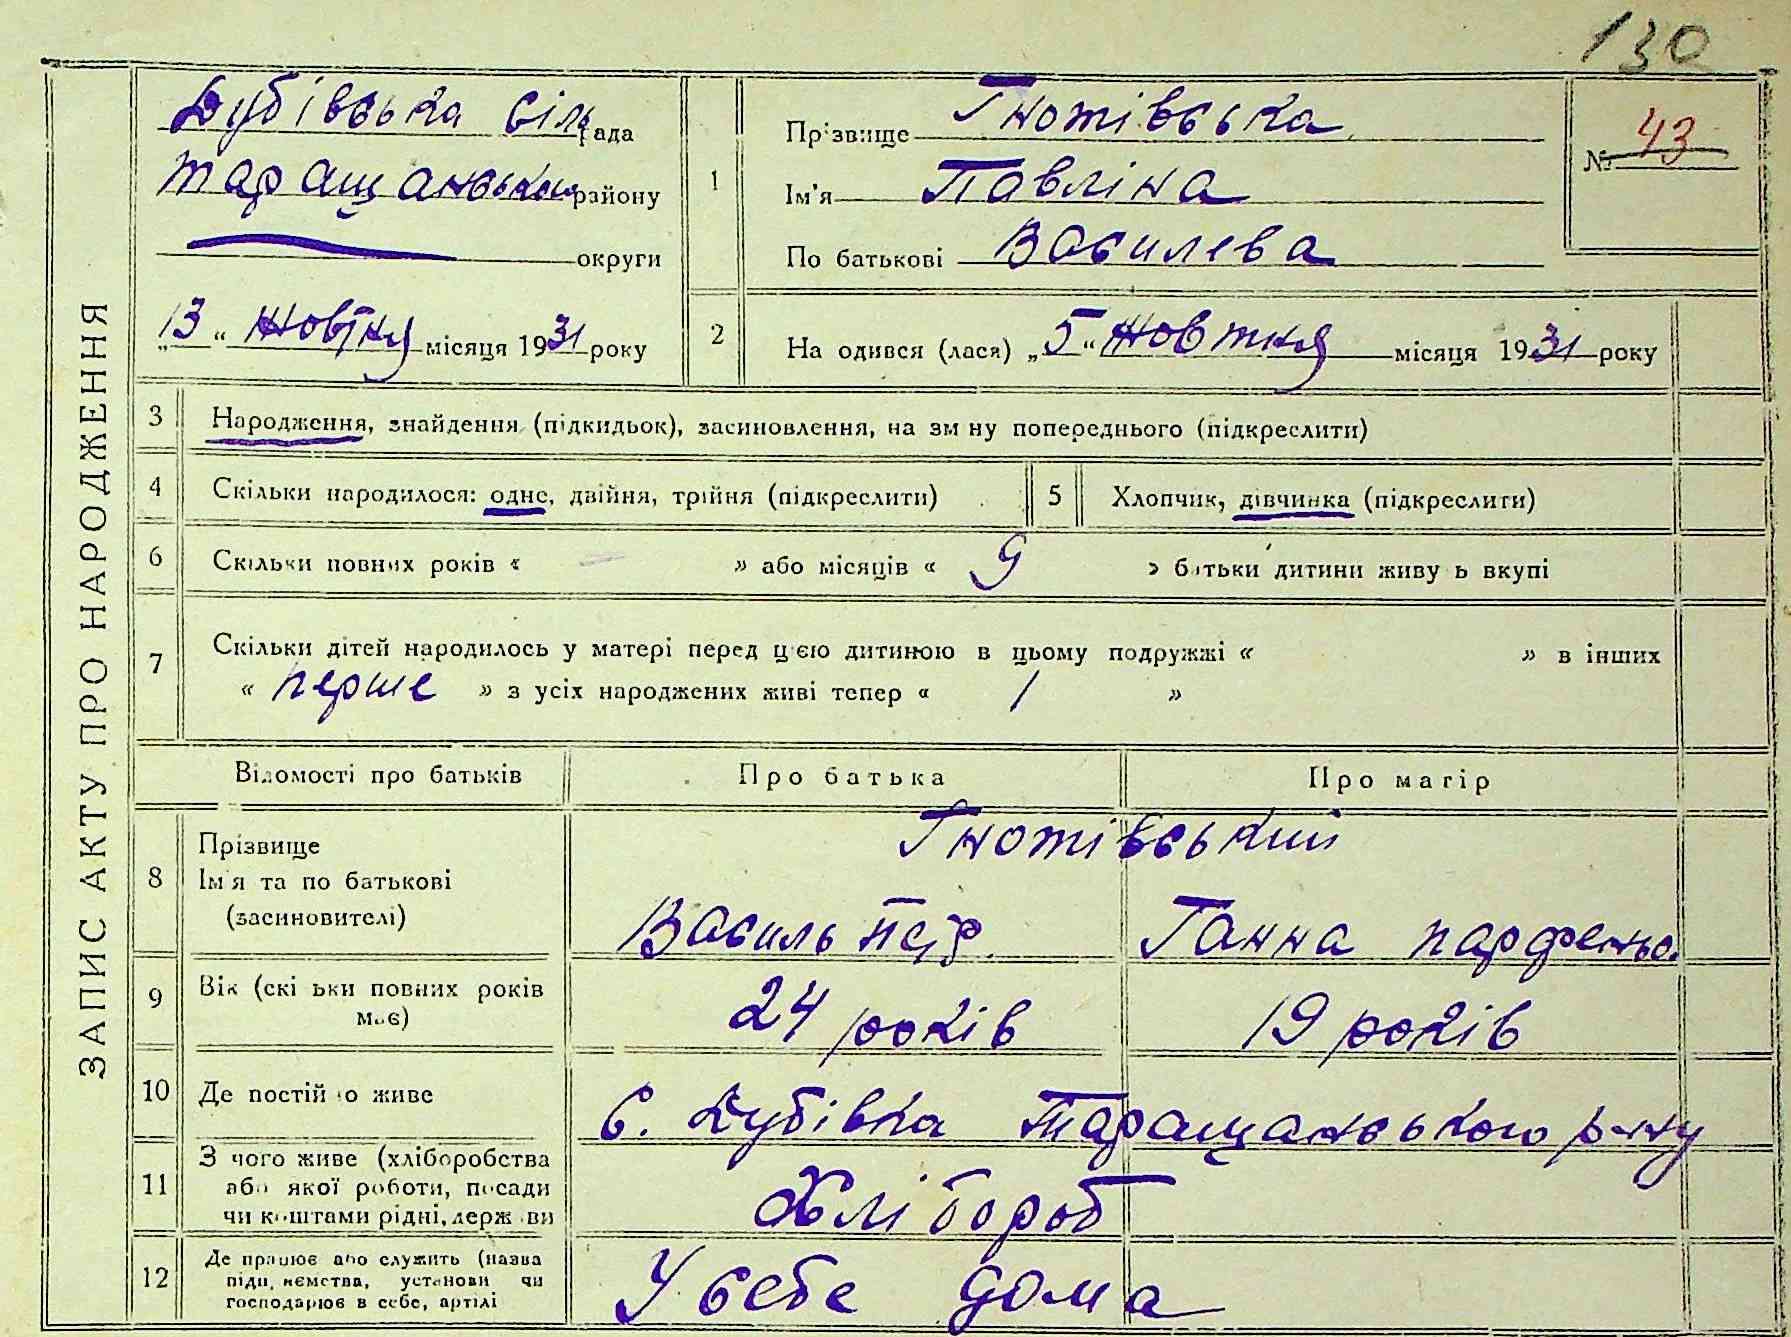 130
ЗАПИС АКТУ ПРО НАРОДЖЕННЯ
Дубівська сільрада
Таращанського району
округи
„13“ жовтня місяця 1931 року
1
Прізвище Гнотівська
Ім'я Павліна
По батькові Василева
№ 43
2
На одився (лася) „5“ жовтня місяця 1931 року
3
Народження, знайдення (підкидьок), засиновлення, на зм ну попереднього (підкреслити)
4
Скільки народилося: одне, двійня, трійня (підкреслити)
5
Хлопчик, дівчинка (підкреслити)
6
Скільки повних років « — » або місяців « 9 » батьки дитини живу ь вкупі
7
Скільки дітей народилось у матері перед цією дитиною в цьому подружжі « » в інших
« перше » з усіх народжених живі тепер « 1 »
Відомості про батьків
Про батька
Про матір
8
Прізвище
Ім'я та по батькові
(засиновителі)
Гнотівський
Василь Петр.
Ганна Парфеньо.
9
Вік (скі ьки повних років
має)
24 років
19 років
10
Де постій о живе
С. Дубівка Таращанського р-ну
11
З чого живе (хліборобства
або якої роботи, посади
чи коштами рідні, держ ви
Хлібороб
12
Де працює або служить (назва
підп иємства, установи чи
господарює в себе, артілі
У себе дома